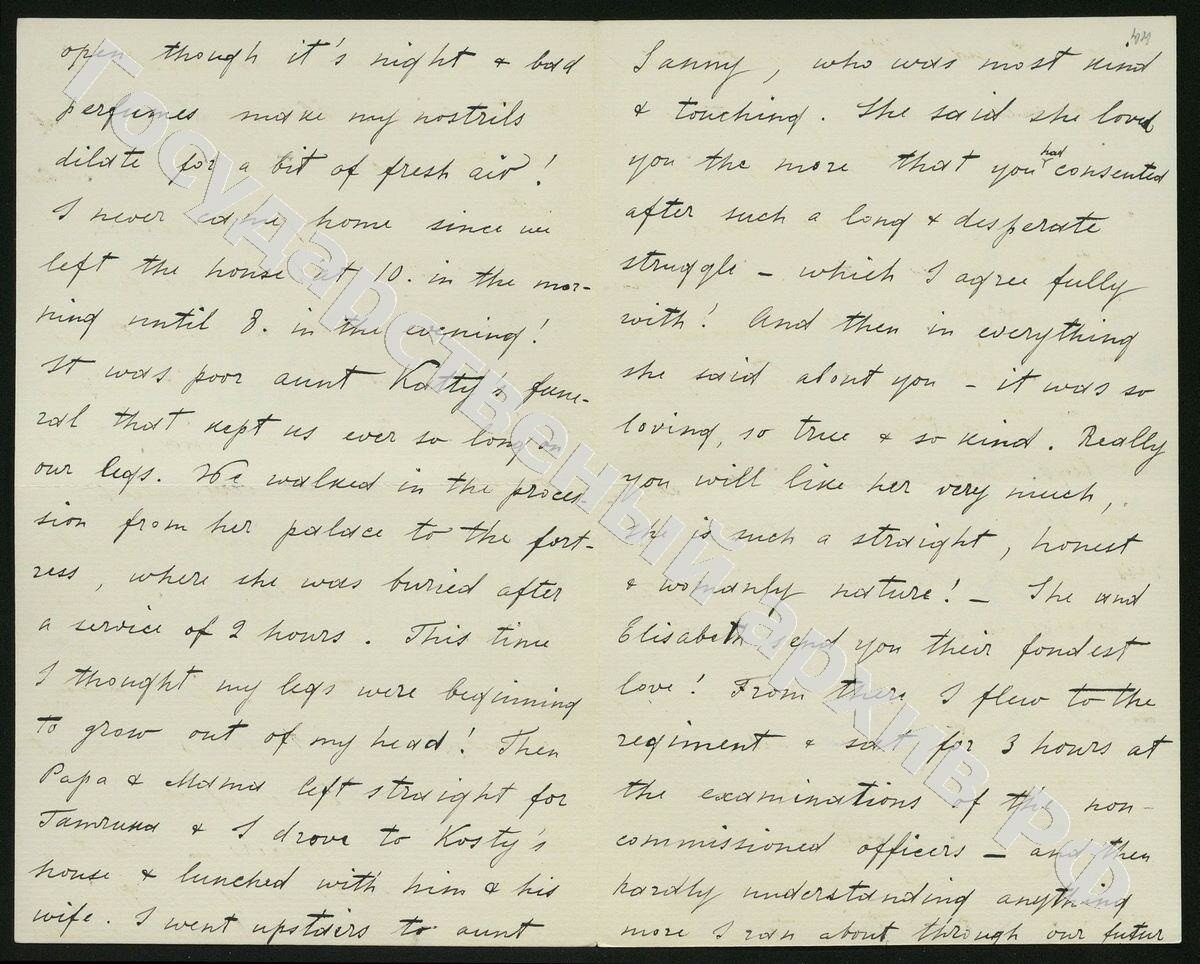 open though it's night & bad
perfumes make my nostrils
dilate for a bit of fresh air!
I never came home since we
left the house at 10. in the mor-
ning until 8. in the evening!
It was poor aunt Katty's fune-
ral that kept us ever so long on
our legs. We walked in the proces-
sion from her palace to the fort-
ress, where she was buried after
a service of 2 hours. This time
I thought my legs were beginning
to grow out of my head! Then
Papa & Mama left straight for
& I drove to Kosty's
house & lunched with him & his
wife. I went upstairs to aunt
Sanny, who was most kind
& touching. She said she loved
you the more that you had consented
after such a long & desperate
struggle – which I agree fully
with! And then in everything
she said about you – it was so
loving, so true & so kind. Really
you will like her very much,
she is such a straight, honest
& womanly nature! – She and
Elisabeth send you their fondest
love! From there I flew to the
regiment & sat for 3 hours at
the examinations of the non-
commissioned officers – and then
hardly understanding anything
more I ran about through our futur
Государственный архив РФ